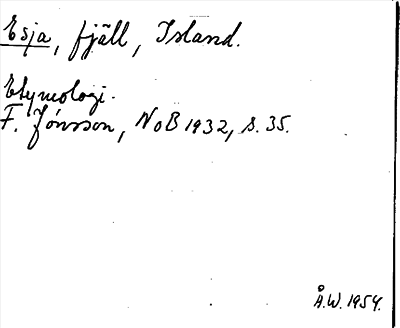 Esja, fjäll, Island.
Etymologi.
F. Jónsson, NoB 1932, s. 35.
Å.W. 1954.